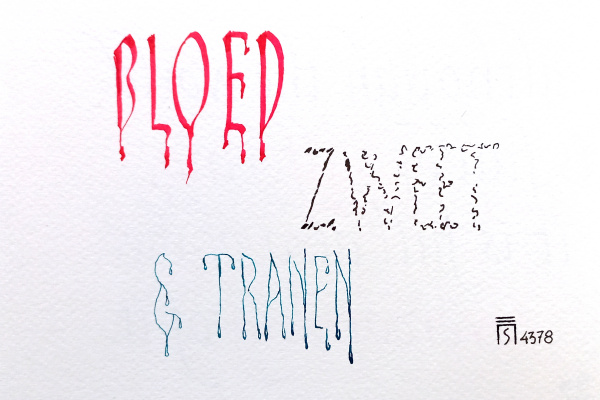 BLOED
ZWEET
& TRANEN
4378